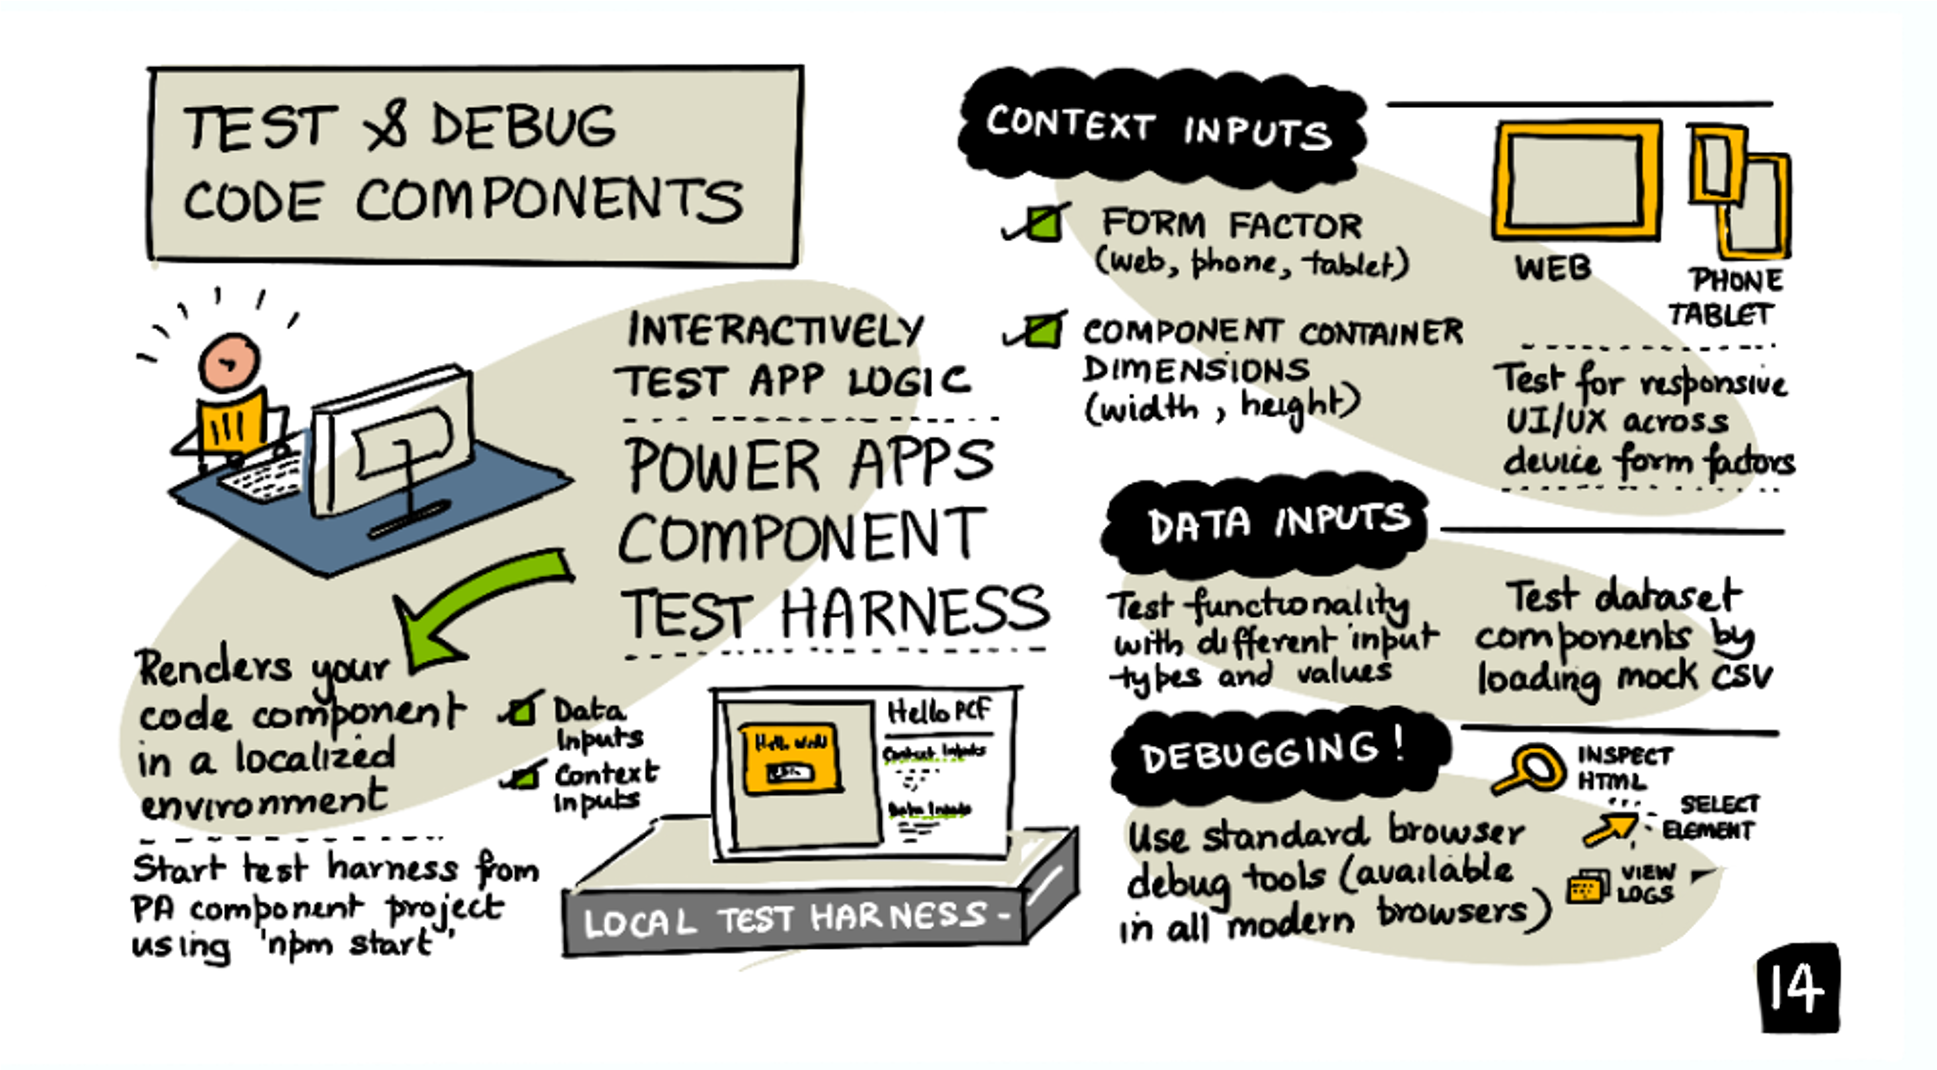 TEST & DEBUG
CODE COMPONENTS
INTERACTIVELY
TEST APP LOGIC
POWER APPS
COMPONENT
TEST HARNESS
Renders your
code component
in a localized
environment
Data
Inputs
Context
Inputs
Start test harness from
PA component project
using 'npm start'
Hello PCF
Context Inputs
Data Inputs
LOCAL TEST HARNESS-
CONTEXT INPUTS
FORM FACTOR
(web, phone, tablet)
COMPONENT CONTAINER
DIMENSIONS
(width, height)
WEB
PHONE
TABLET
Test for responsive
UI/UX across
device form factors
DATA INPUTS
Test functionality
with different input
types and values
Test dataset
components by
loading mock CSV
DEBUGGING!
Use standard browser
debug tools (available
in all modern browsers)
INSPECT
HTML
SELECT
ELEMENT
VIEW
LOGS
14